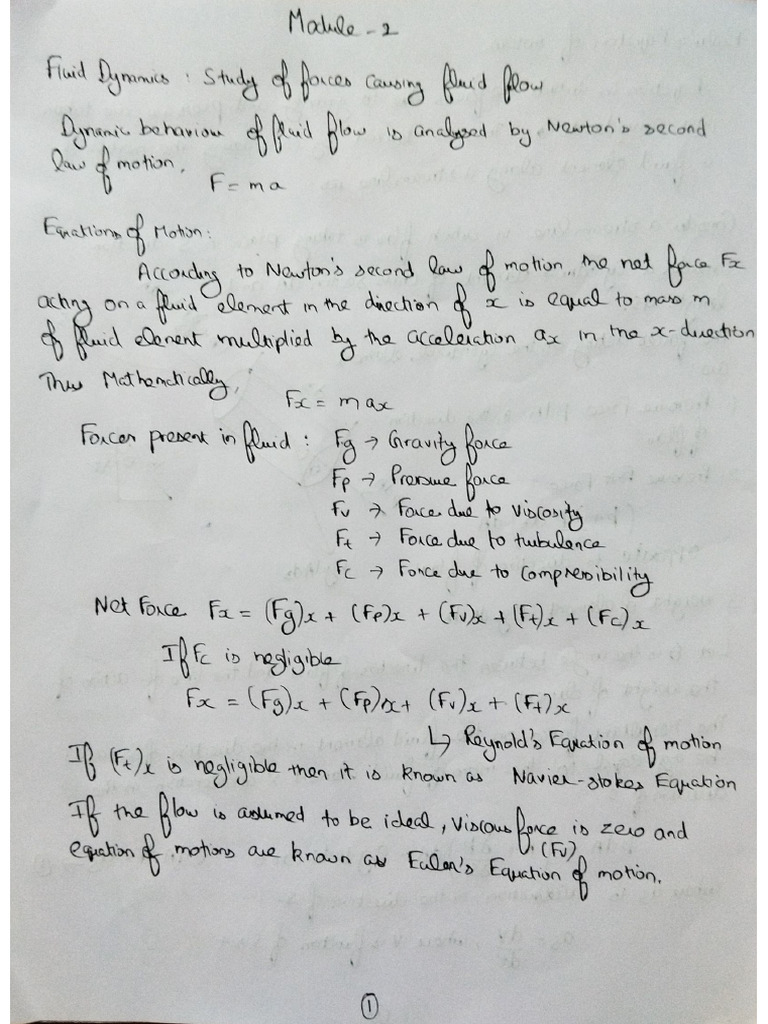 Module - 2
Fluid Dynamics : Study of forces causing fluid flow
Dynamic behaviour of fluid flow is analysed by Newton's second
law of motion.
F = ma
Equations of Motion:
According to Newton's second law of motion, the net force Fx
acting on a fluid element in the direction of x is equal to mass m
of fluid element multiplied by the acceleration ax in the x-direction
Thus Mathematically,
Fx = max
Forces present in fluid : Fg → Gravity force
Fp → Pressure force
Fv → Force due to viscosity
Ft → Force due to turbulence
Fc → Force due to compressibility
Net Force Fx = (Fg)x + (Fp)x + (Fv)x + (Ft)x + (Fc)x
If Fc is negligible
Fx = (Fg)x + (Fp)x + (Fv)x + (Ft)x
↳ Reynold's Equation of motion
If (Ft)x is negligible then it is known as Navier-Stokes Equation
If the flow is assumed to be ideal, viscous force is zero and
(Fv)
equation of motions are known as Euler's Equation of motion.
1